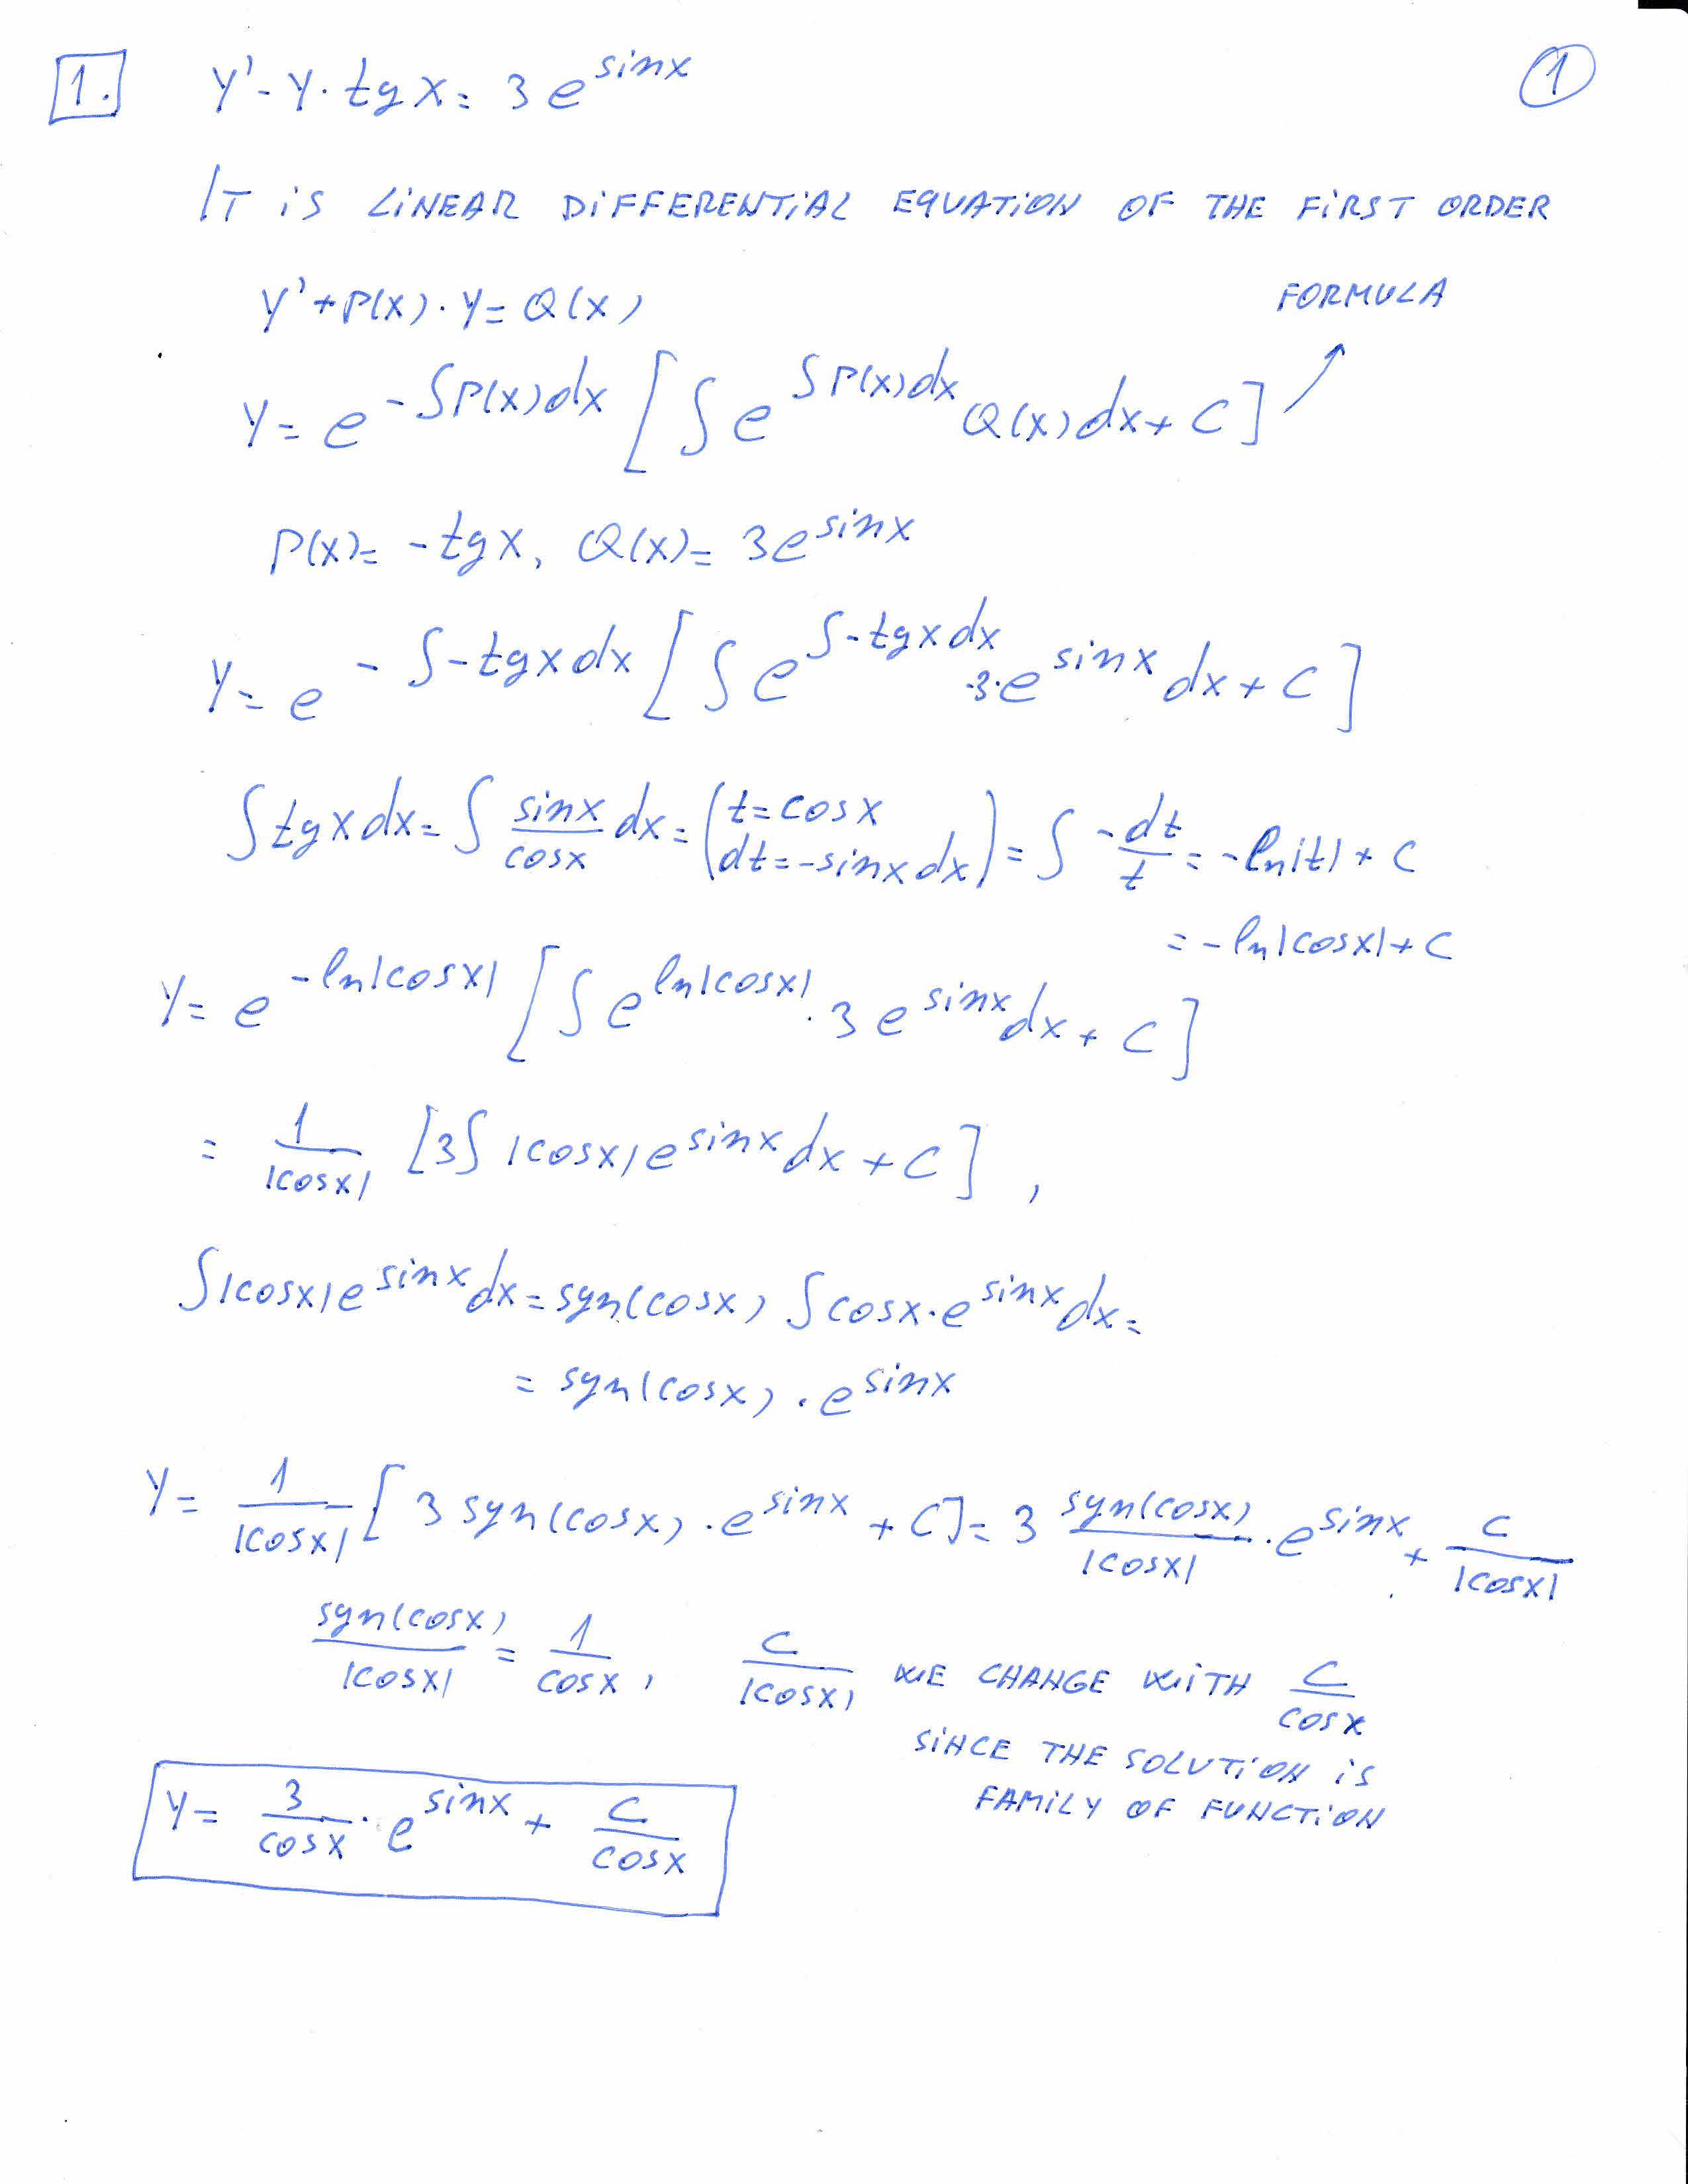 1. y' - y · tg x = 3 e^sinx ①
IT IS LINEAR DIFFERENTIAL EQUATION OF THE FIRST ORDER
y' + P(x) · y = Q(x) FORMULA
y = e^-∫P(x)dx [∫e^∫P(x)dx Q(x)dx + C]
P(x) = -tg x, Q(x) = 3e^sinx
y = e^-∫-tgxdx [∫e^∫-tgxdx ·3·e^sinx dx + C]
∫tgxdx = ∫ sinx/cosx dx = (t = cosx dt = -sinxdx) = ∫ -dt/t = -ln|t| + C
= -ln|cosx| + C
y = e^-ln|cosx| [∫e^ln|cosx| · 3 e^sinx dx + C]
= 1/|cosx| [3∫|cosx|e^sinx dx + C],
∫|cosx|e^sinx dx = sgn(cosx) ∫cosx·e^sinx dx =
= sgn(cosx) · e^sinx
y = 1/|cosx| [3 sgn(cosx) · e^sinx + C] = 3 sgn(cosx)/|cosx| · e^sinx + C/|cosx|
sgn(cosx)/|cosx| = 1/cosx, C/|cosx| WE CHANGE WITH C/cosx
SINCE THE SOLUTION IS
FAMILY OF FUNCTION
y = 3/cosx · e^sinx + C/cosx